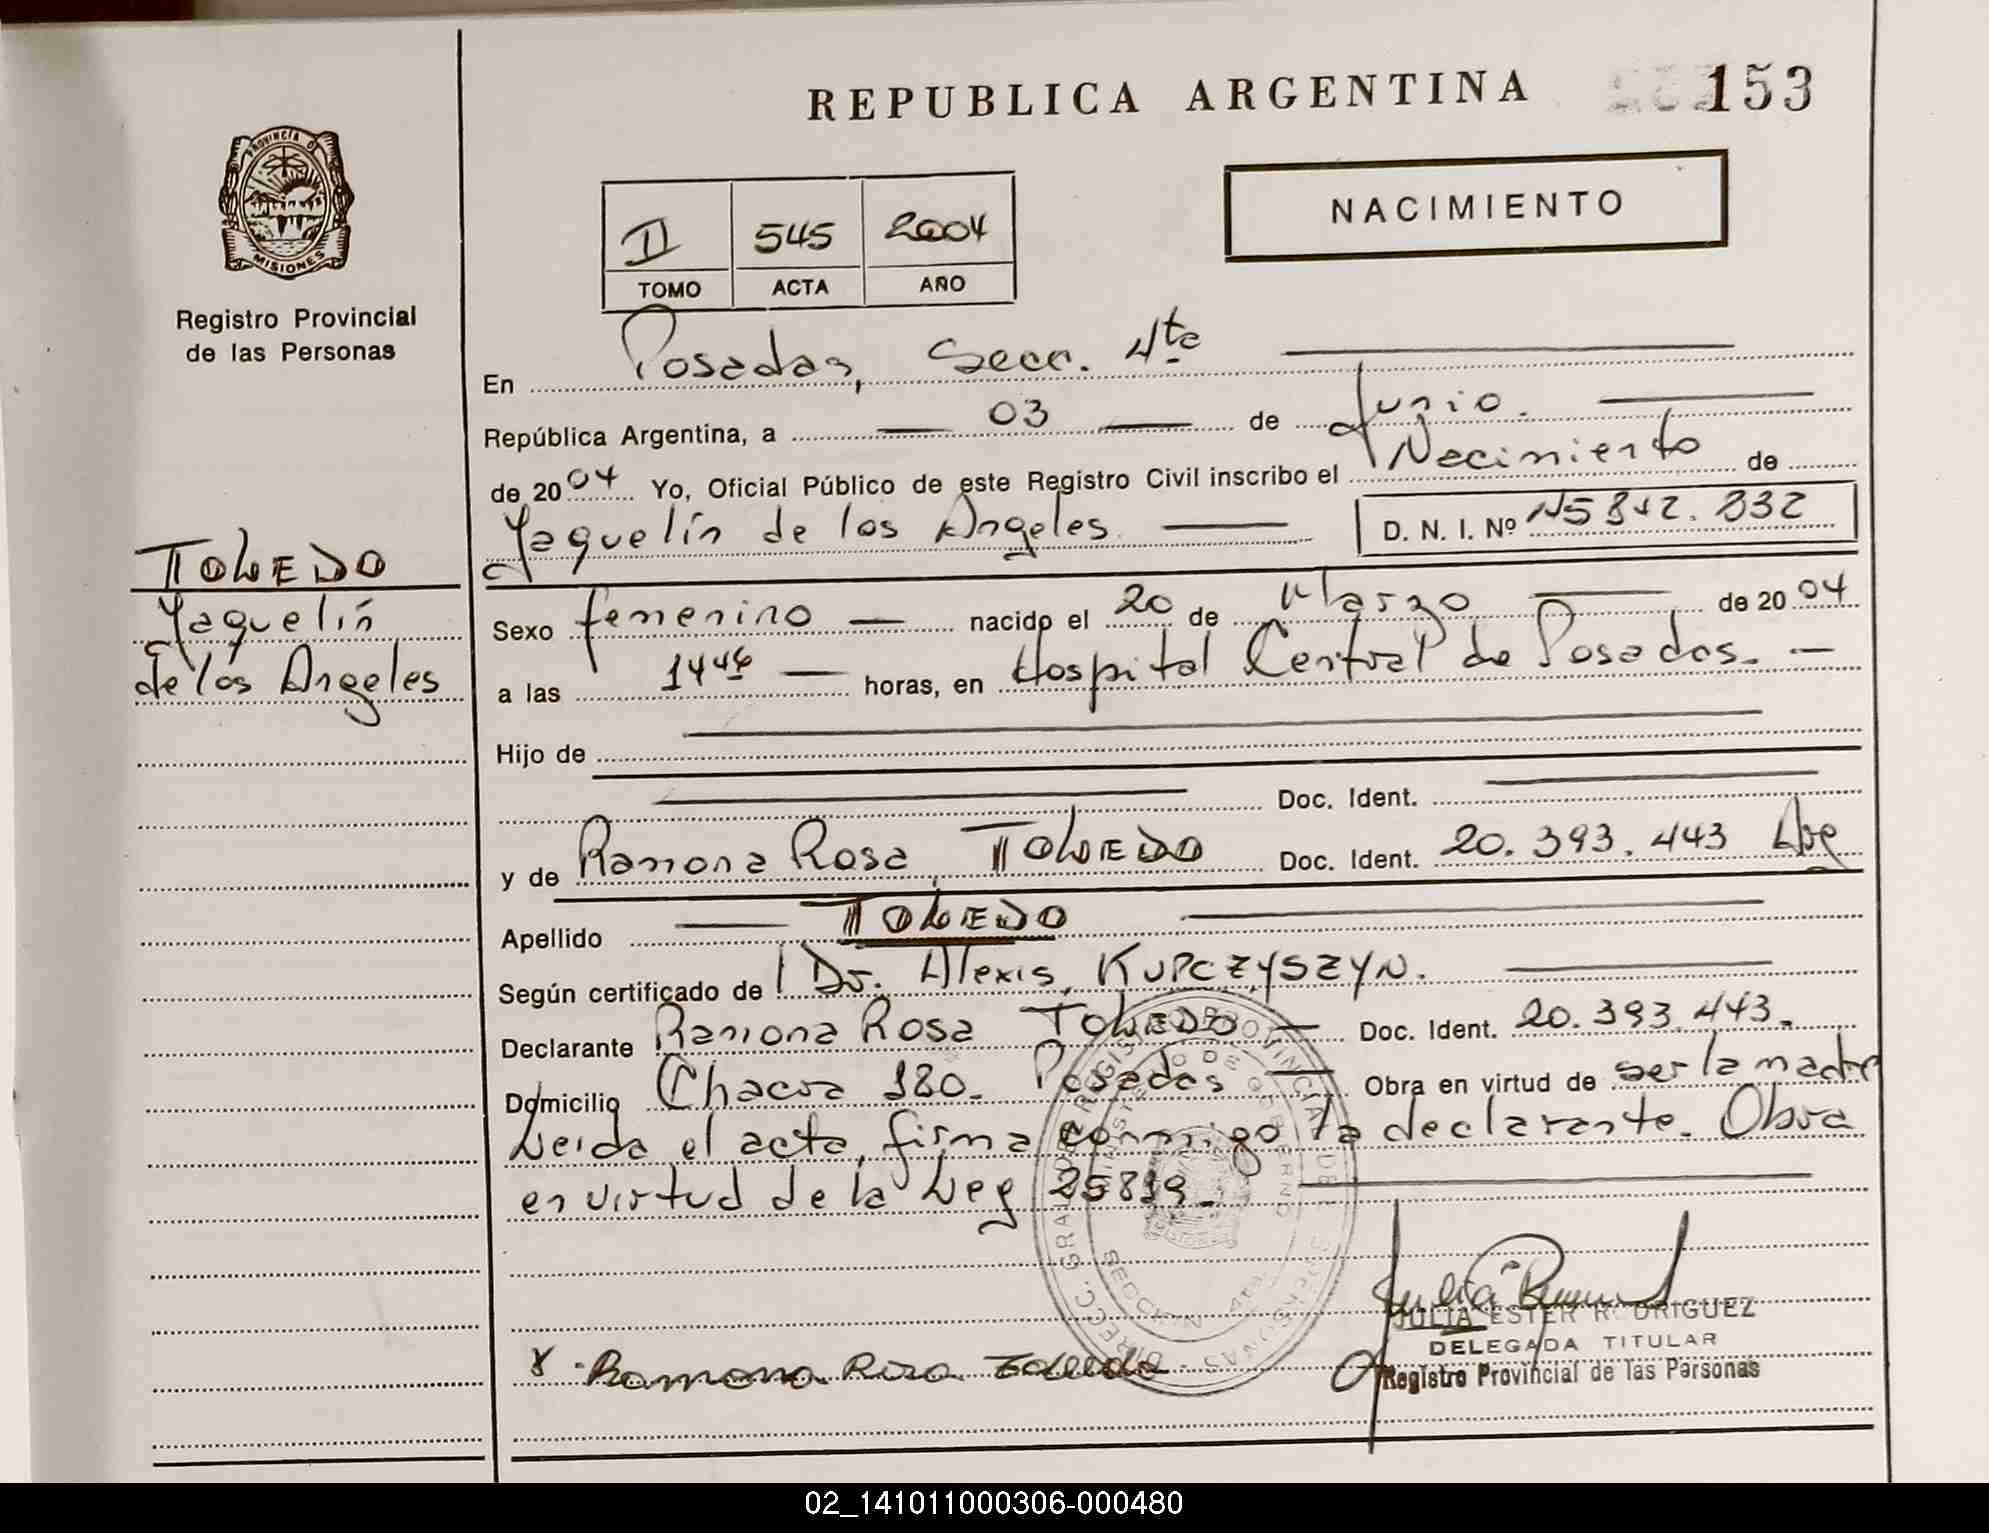 REPUBLICA ARGENTINA
153
PROVINCIA D
MISIONES
Registro Provincial
de las Personas
II 545 2004
TOMO ACTA AÑO
NACIMIENTO
En Posadas, Secc. 4ta
República Argentina, a 03 de Junio.
de 2004 Yo, Oficial Público de este Registro Civil inscribo el Nacimiento de
Yaquelín de los Angeles D. N. I. Nº
TOLEDO
Yaquelín
de los Angeles
Sexo femenino nacido el 20 de Marzo de 2004
a las 1446 horas, en Hospital Central de Posadas.
Hijo de
Doc. Ident.
y de Ramona Rosa TOLEDO Doc. Ident. 20.393.443 Arg
Apellido TOLEDO
Según certificado de Dr. Alexis, KUPCZYSZYN.
Declarante Ramona Rosa TOLEDO Doc. Ident. 20.393.443.
Domicilio Chacra 180. Posadas Obra en virtud de ser la madre
Leida el acta, firma conmigo la declarante. Obra
en virtud de la Ley 25819.
Ramona Rosa Toledo
JULIA ESTER RODRIGUEZ
DELEGADA TITULAR
Registro Provincial de las Personas
02_141011000306-000480